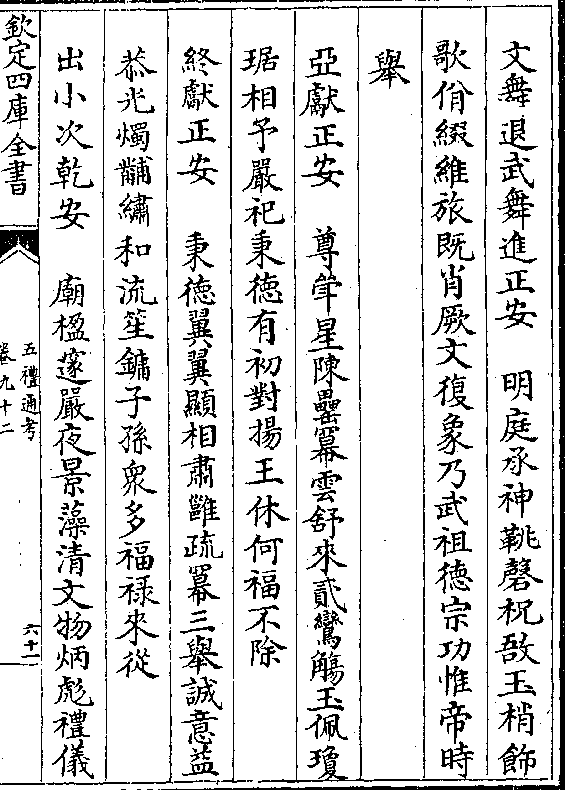 文舞退武舞進正安　明庭承神鞉磬柷敔玉梢飾
歌佾綴維旅既肖厥文復象乃武祖德宗功惟帝時
舉
亞獻正安　尊斝星陳罍冪雲舒來貳鸞觴玉佩瓊
琚相予嚴祀秉德有初對揚王休何福不除
終獻正安　秉德翼翼顯相肅雝疏冪三舉誠意益
恭光燭黼繡和流笙鏞子孫衆多福祿來從
出小次乾安　廟楹邃嚴夜景藻清文物炳彪禮儀
欽定四庫全書
五禮通考
卷九十二
六十一